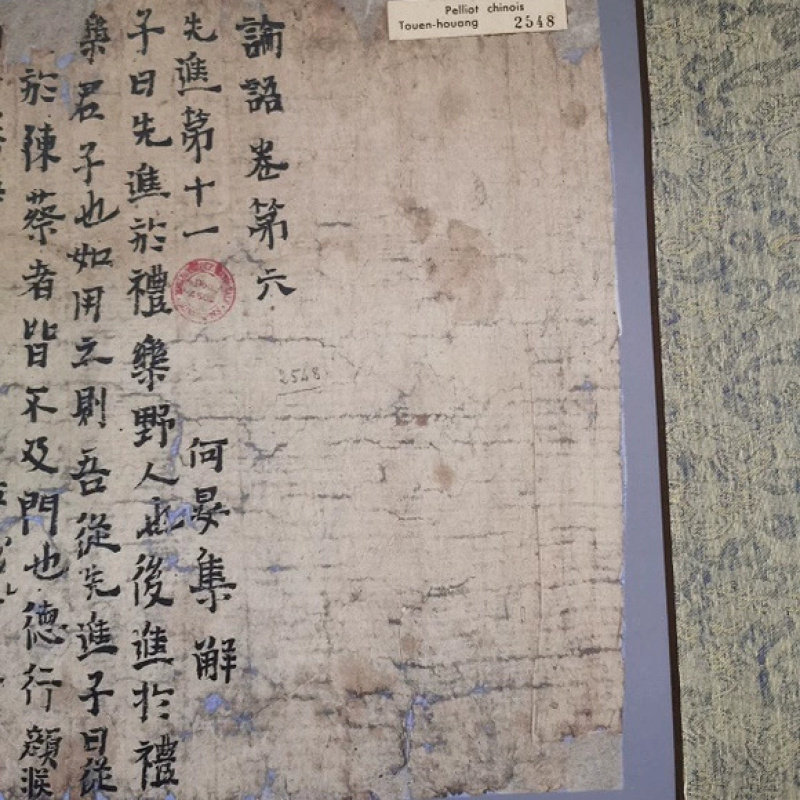 Pelliot chinois
Touen-houang 2548
論語卷第六
先進第十一 何晏集解
2548
子曰先進於禮樂野人也後進於禮
樂君子也如用之則吾從先進子曰從
於陳蔡者皆不及門也德行顏